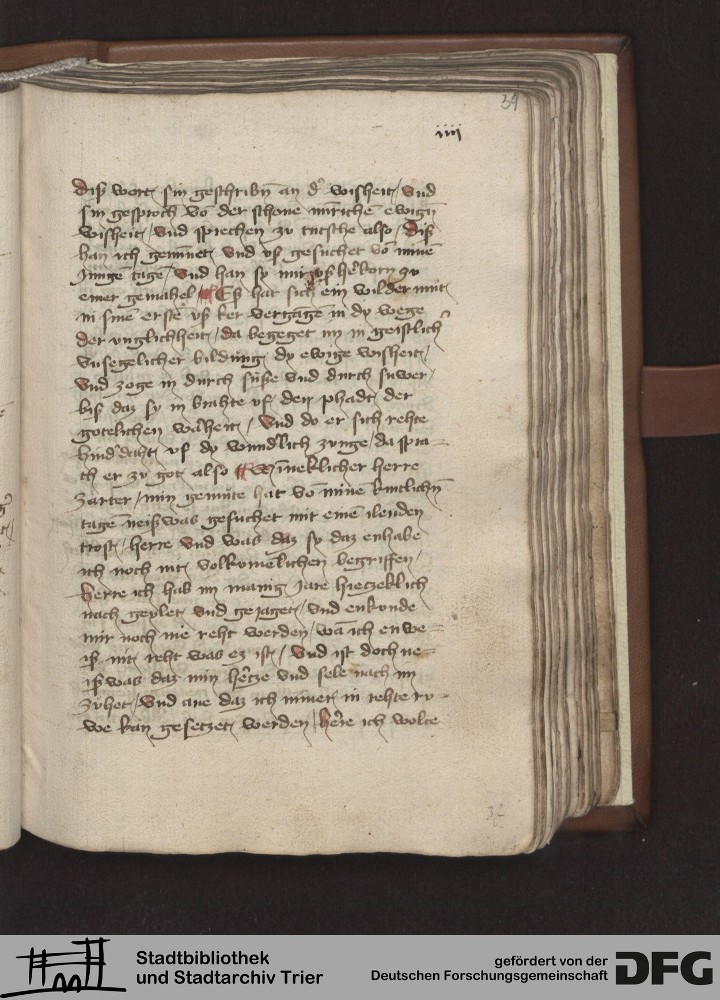 39
iiij
Diß wort sin geschribn an d' wisheit / vnd
sin gesproch vō der schone mīriche ewign
wisheit / vnd sprechen zu tutsche also / Diß
han ich gemīnet vnd vß gesuchet vō mīnē
Jungē tagē / vnd han sy mir vß h'korn zu
einer gemahel Eß hat sich ein wilder mūt
in sinē erstē vß ker vergāgē in dy wege
der vnglichheit / da begeget im in geistlich'
vnsegelicher bildung dy ewige wisheit /
vnd zoge in durch süsse vnd durch suwer /
biß daz sy in brahte vf den phadt der
gotelichen wārheit / Vnd do er sich rehte
hind'daht vf dy wund'lich zunge / da spra=
ch er zu got also Mīneklicher herre
zarter / min gemüte hat vō mīnē kintlichn
tagē neißwas gesuchet mit einē ilenden
trost / herre vnd was daz sy daz enhabe
ich noch nit volkomelichen begriffen /
herre ich hab im manig Jare hieczeklich
nach geylet vnd gejaget / vnd enkunde
mir noch nie reht werden / wā ich en we=
iß nit reht was ez ist / Vnd ist doch ne=
iß was daz min h'tze vnd sele nach im
zühet / vnd ane daz ich nimer in rehte ru=
we kan gesetzet werden / Here ich wolte
Stadtbibliothek
und Stadtarchiv Trier
gefördert von der
Deutschen Forschungsgemeinschaft
DFG